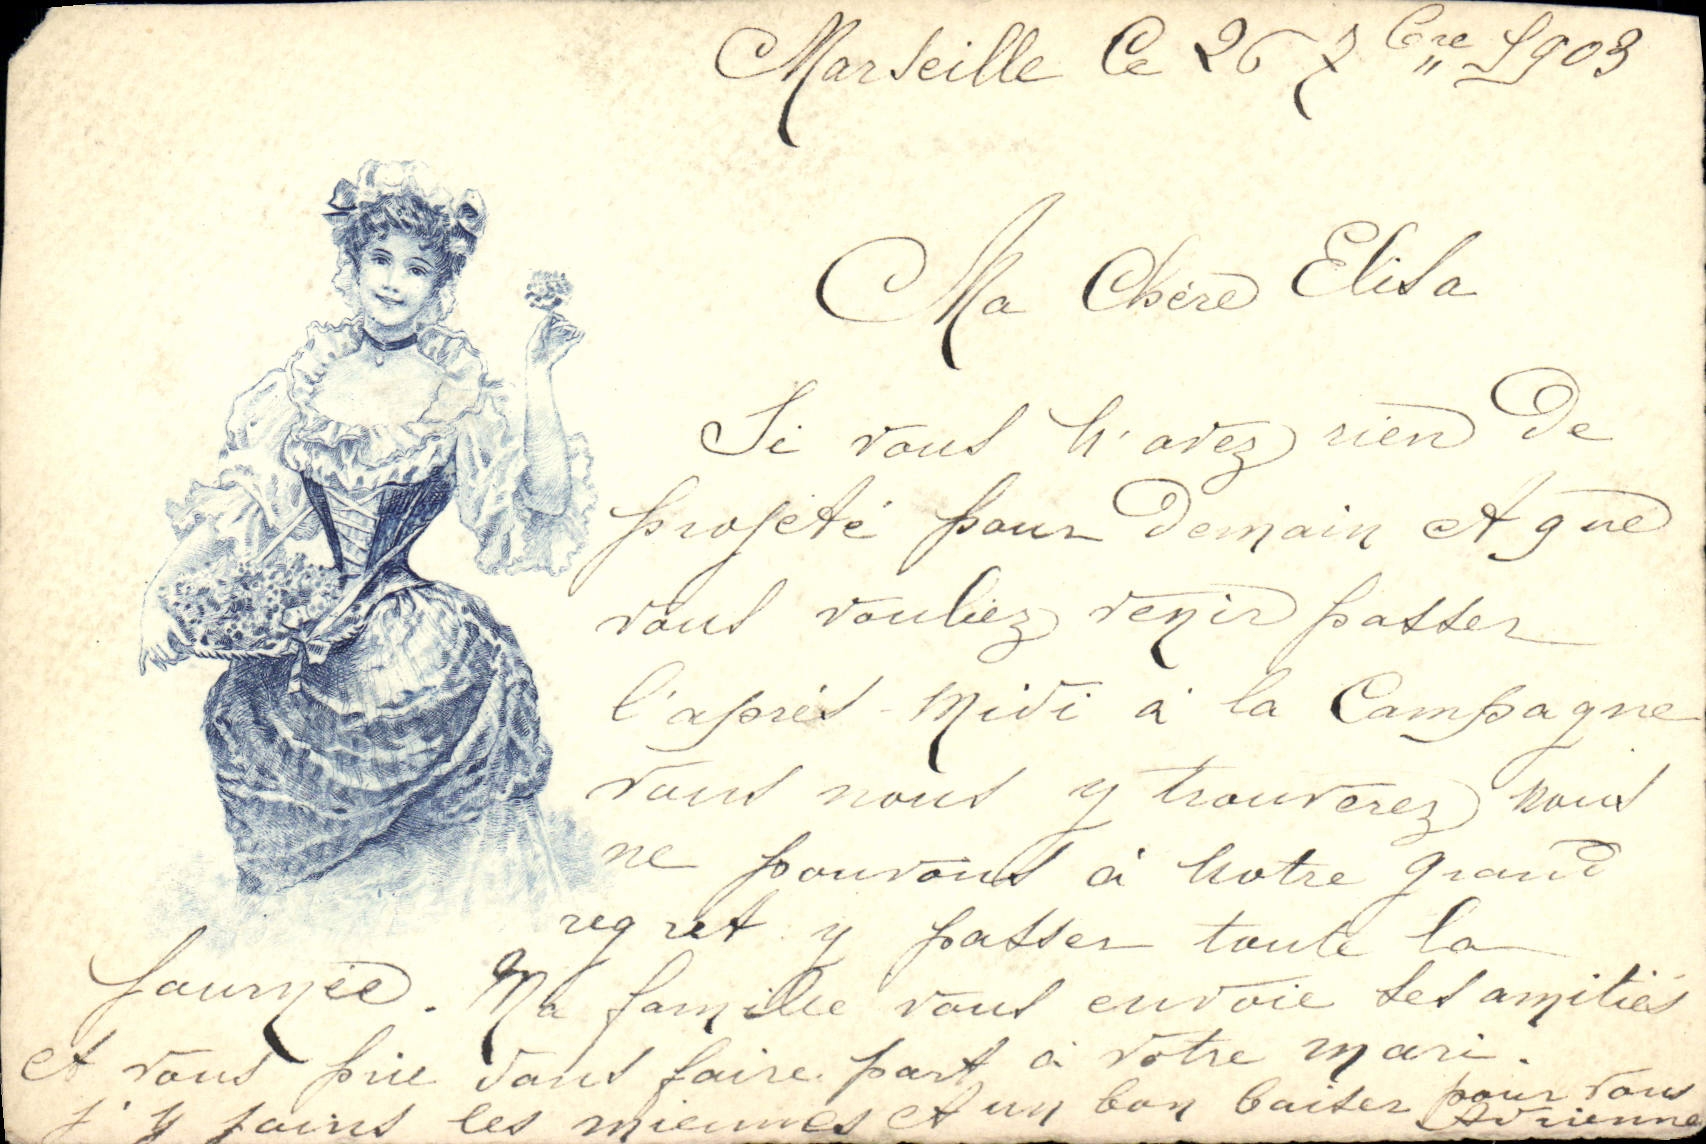 Marseille Ce 26 7bre 1903
Ma Chère Elisa
Si vous n'avez rien de
projeté pour demain et que
vous vouliez venir passer
l'après-midi à la Campagne
vous nous y trouverez nous
ne pouvons à notre grand
regret y passer toute la
journée. Ma famille vous envoie ses amitiés
et vous prie d'en faire part à votre mari.
j'y joins les miennes et un bon baiser pour vous
Adrienne